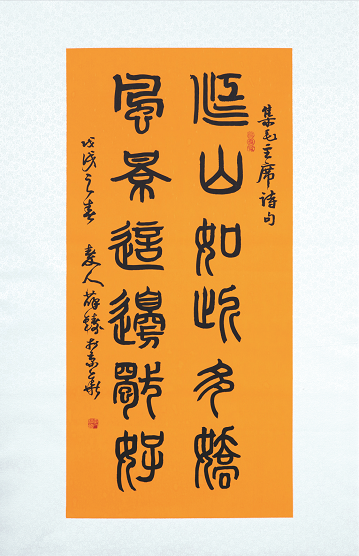 集毛主席诗句
江山如此多嬌
風景這邊獨好
戊戌之春